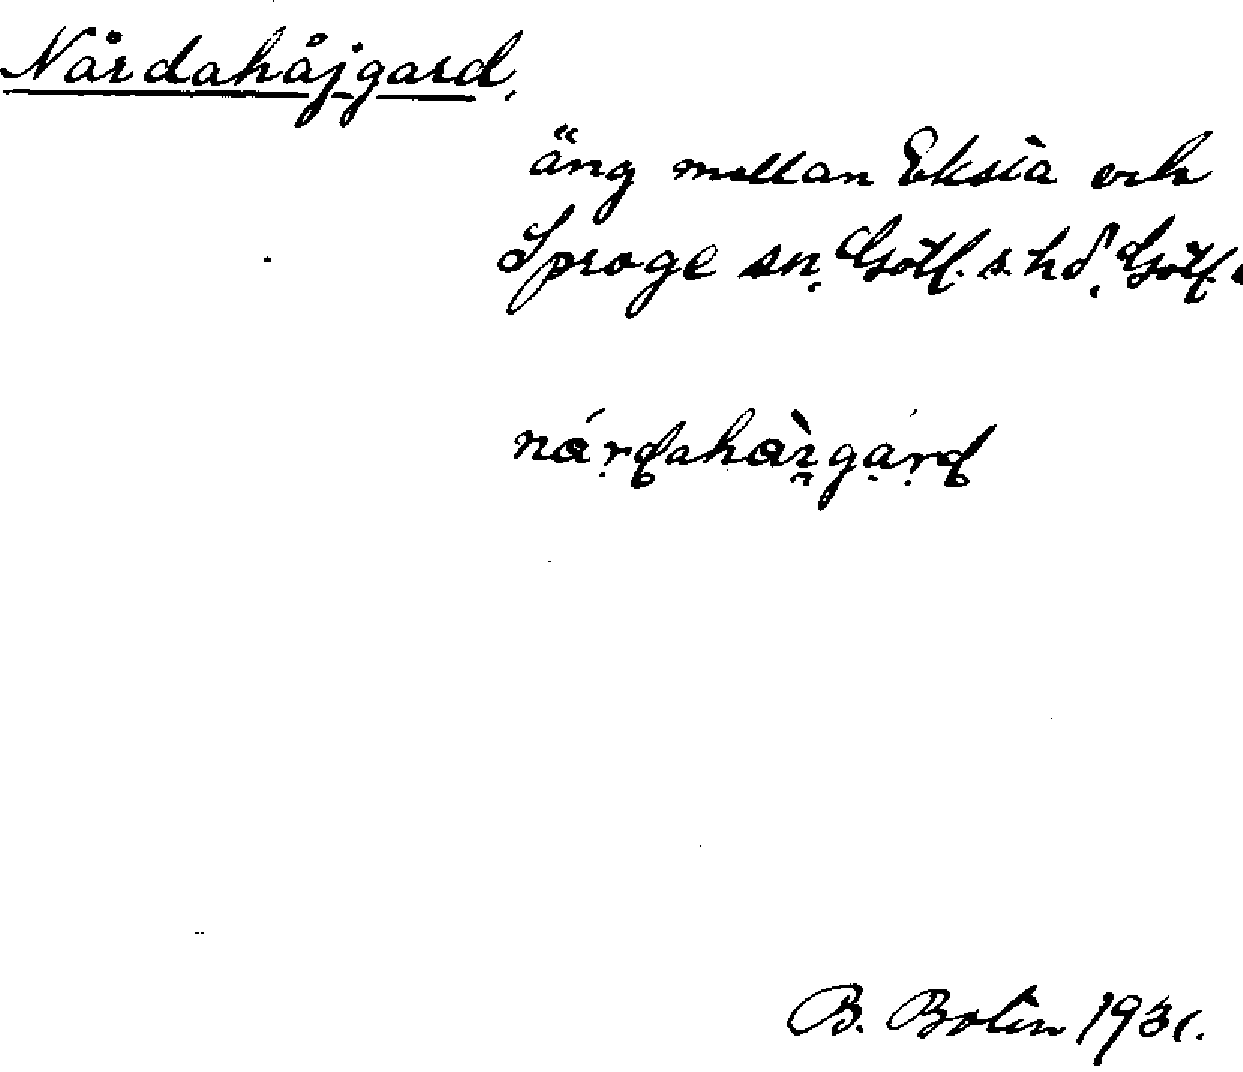 Nårdahåjgard,
äng mellan Eksta och
Sproge sn, Gotl. s. hd, Gotl.
B. Bolin 1931.